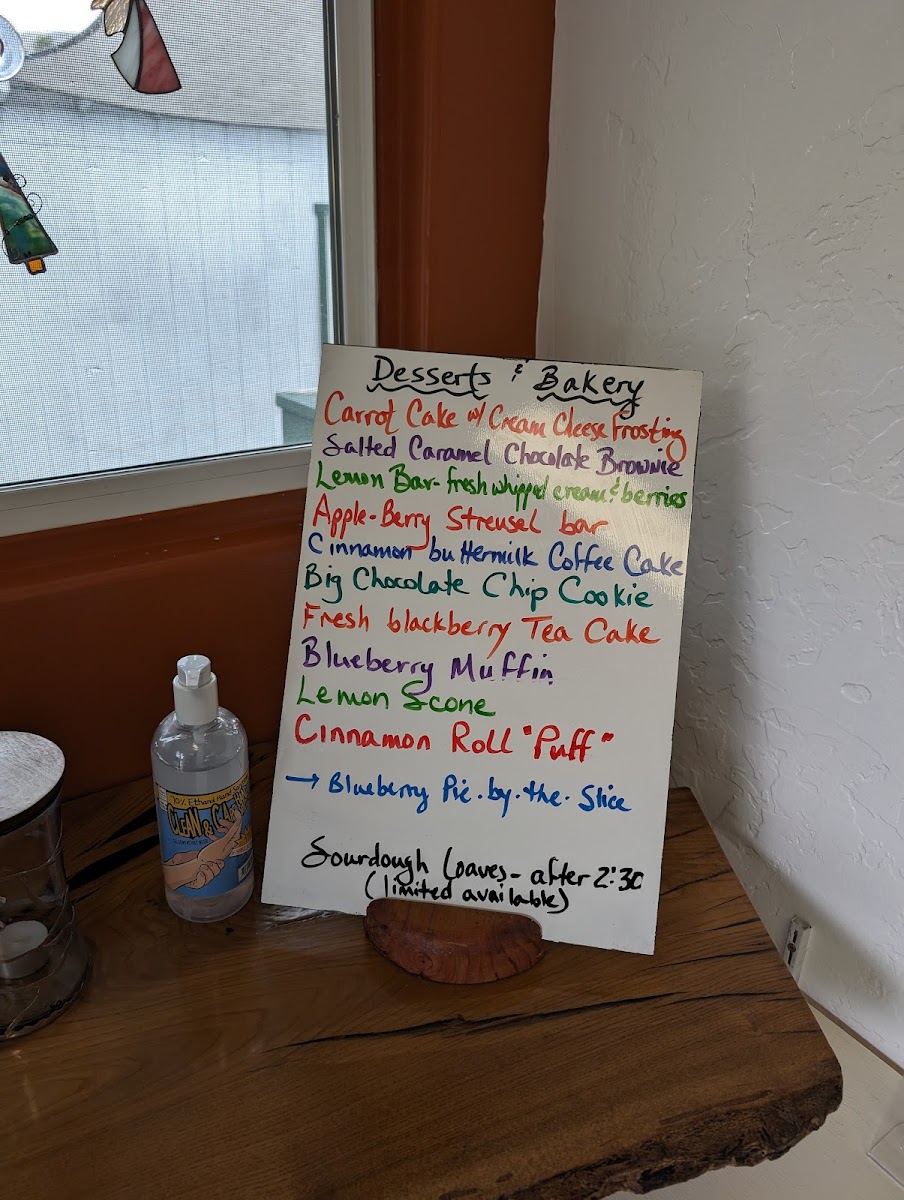 Desserts & Bakery
Carrot Cake w/ Cream Cheese Frosting
Salted Caramel Chocolate Brownie
Lemon Bar - fresh whipped cream & berries
Apple-Berry Streusel bar
Cinnamon buttermilk Coffee Cake
Big Chocolate Chip Cookie
Fresh blackberry Tea Cake
Blueberry Muffin
Lemon Scone
Cinnamon Roll "Puff"
→ Blueberry Pie.by.the.Slice
Sourdough Loaves - after 2:30
(limited available)
70% Ethanol Hand
CLEAN &